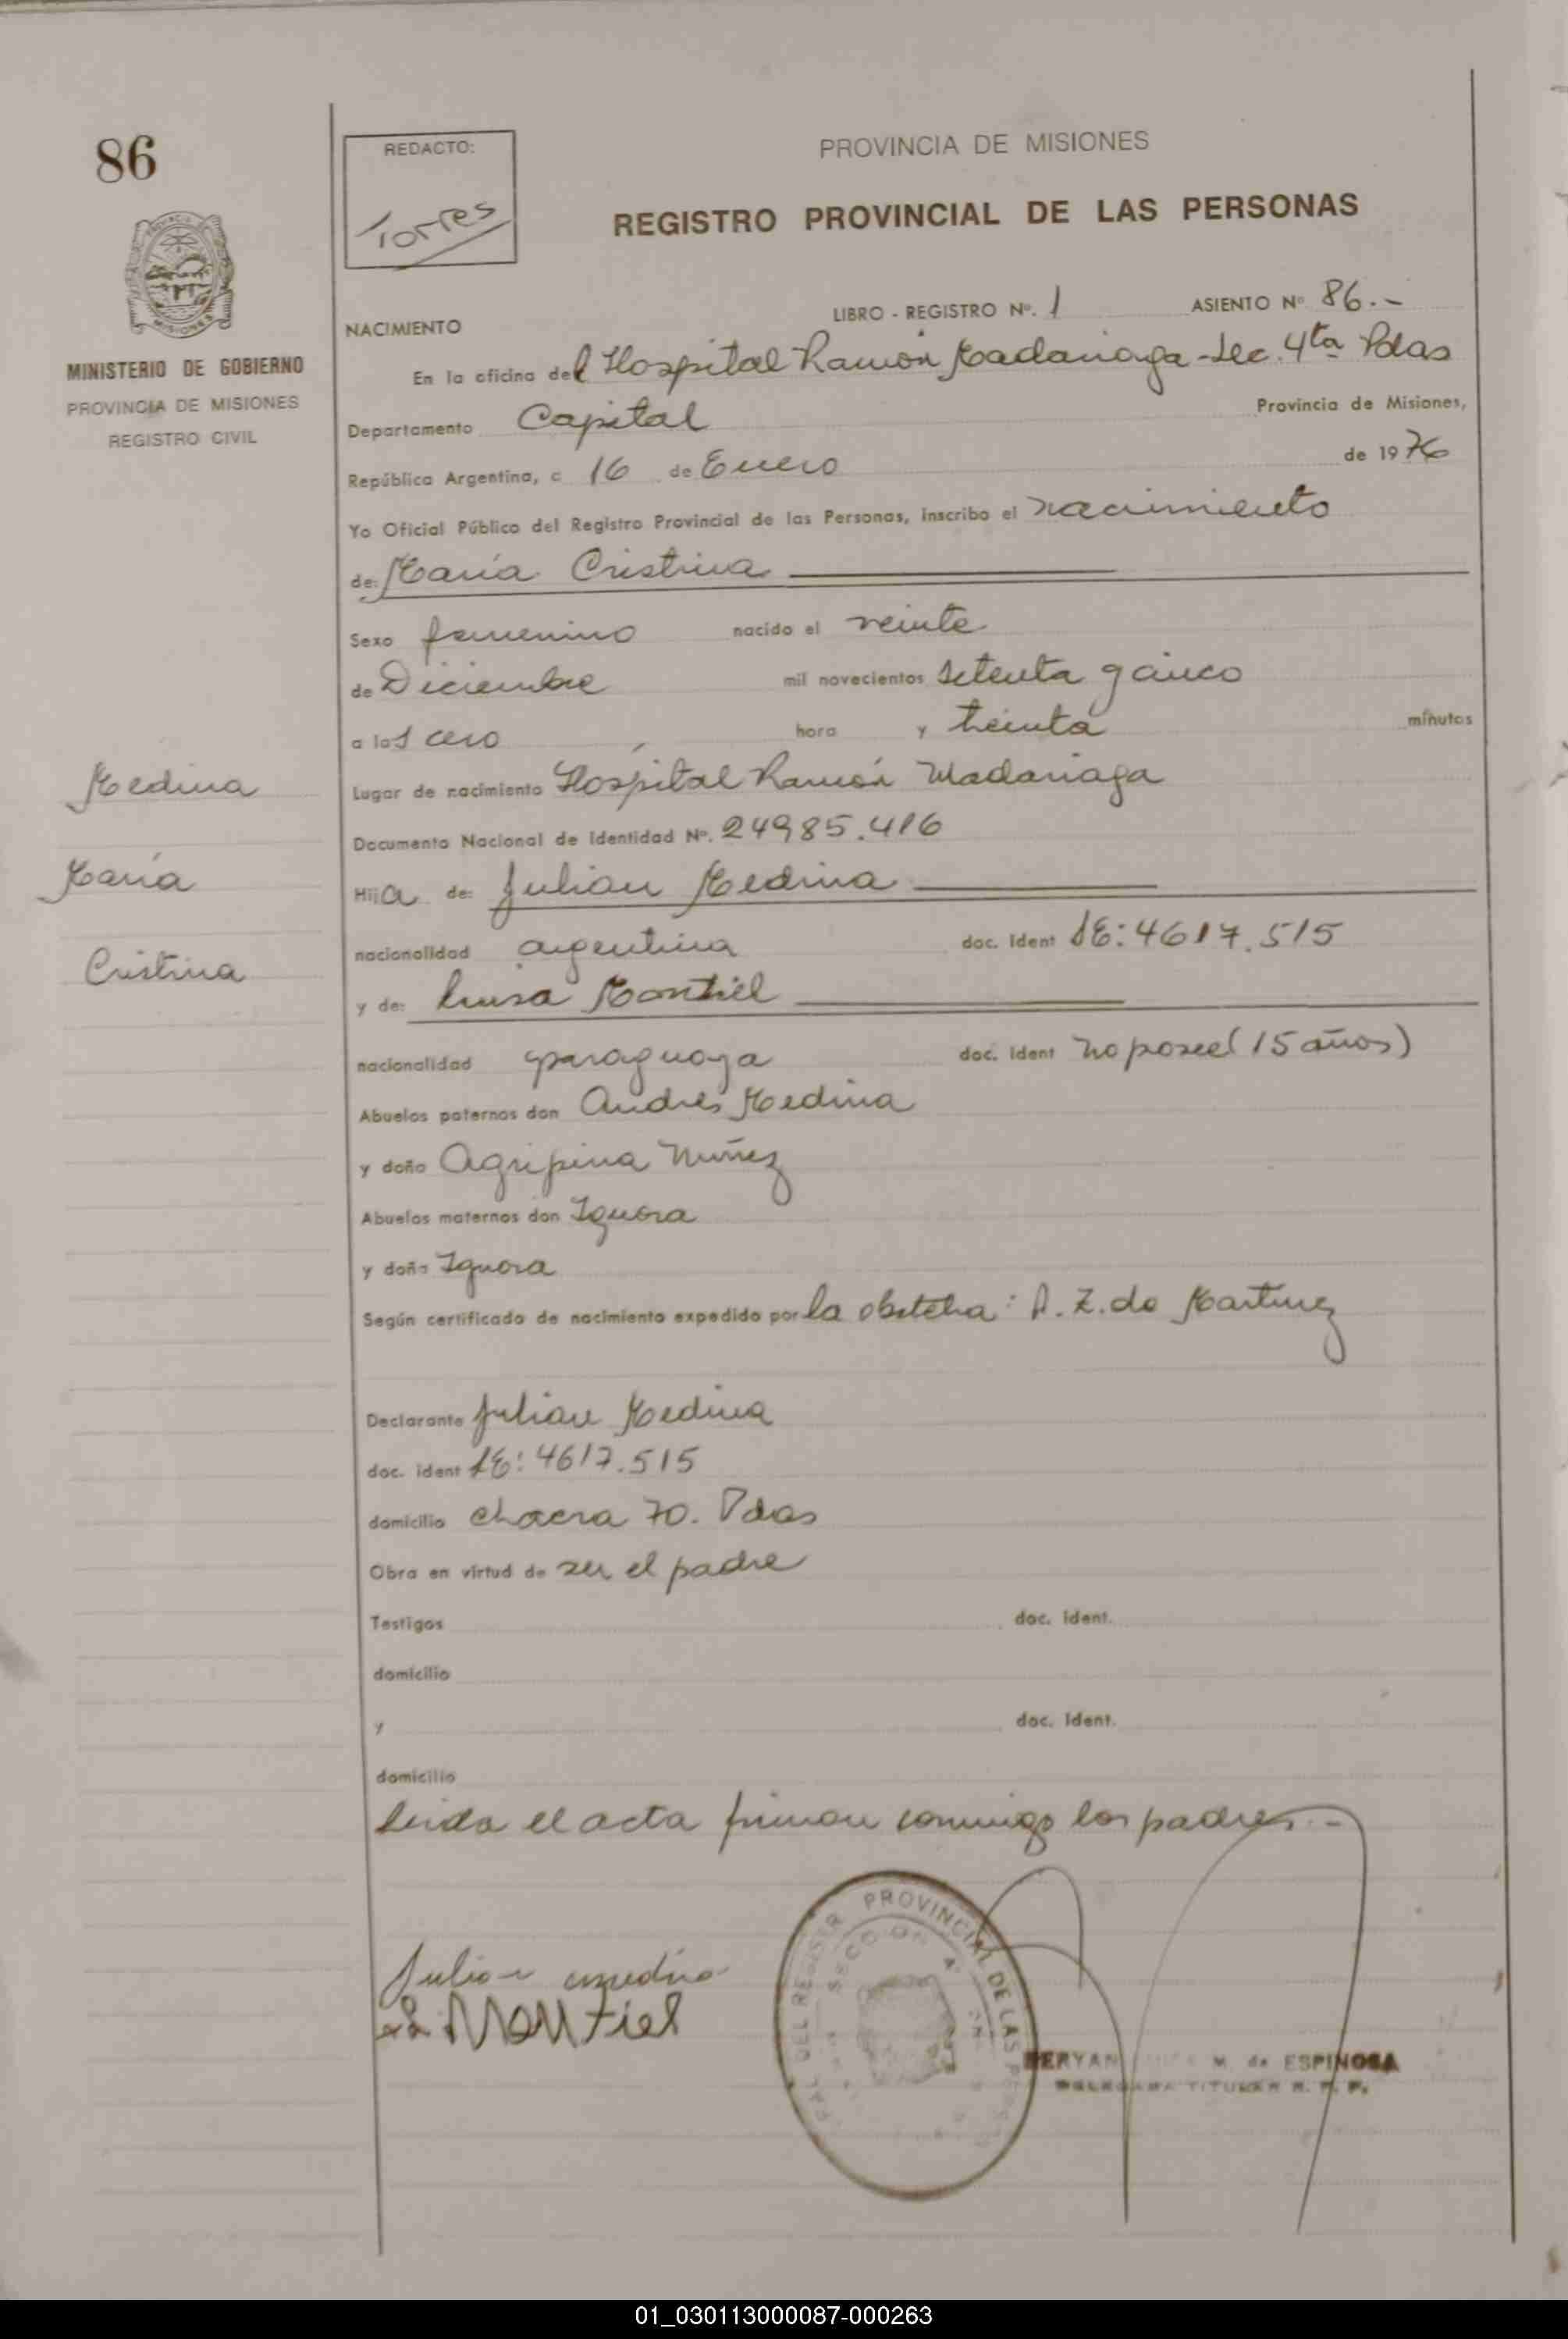 86
REDACTO:
Torres
PROVINCIA DE MISIONES
REGISTRO PROVINCIAL DE LAS PERSONAS
MISIONES
MINISTERIO DE GOBIERNO
PROVINCIA DE MISIONES
REGISTRO CIVIL
NACIMIENTO LIBRO - REGISTRO Nº. 1 ASIENTO Nº 86.-
En la oficina del Hospital Ramón Madariaga - Sec. 4ta Pdas
Departamento Capital Provincia de Misiones,
República Argentina, a 16 de Enero de 1976
Yo Oficial Público del Registro Provincial de las Personas, inscribo el nacimiento
de: María Cristina
Sexo femenino nacido el veinte
de Diciembre mil novecientos setenta y cinco
a las cero hora y treinta minutos
Lugar de nacimiento Hospital Ramón Madariaga
Documento Nacional de Identidad Nº. 24985.416
Hija de: Julian Medina
nacionalidad argentina doc. Ident LE: 4617.515
y de: Luisa Montiel
nacionalidad paraguaya doc. Ident no posee (15 años)
Abuelos paternos don Andrés Medina
y doña Agripina Nuñez
Abuelos maternos don Ignora
y doña Ignora
Según certificado de nacimiento expedido por la obstetra: A. Z. de Martinez
Declarante Julian Medina
doc. ident LE: 4617.515
domicilio chacra 70. Pdas
Obra en virtud de ser el padre
Testigos doc. ident.
domicilio
y doc. Ident.
domicilio
Leida el acta firman conmigo los padres.-
Medina
María
Cristina
Julian medina
L. Montiel
PROVINCIAL DE LAS
SECCION 4
M. de ESPINOSA
DELEGADA TITULAR R. P. P.
01_030113000087-000263